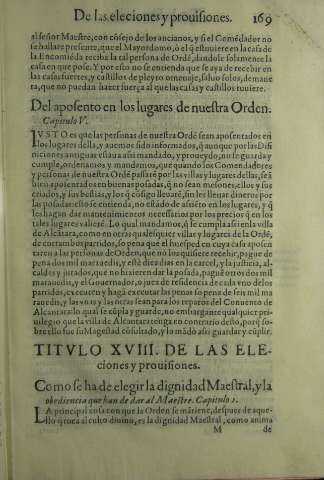 De las eleciones y prouisiones. 169
al señor Maestre, con cõsejo de los ancianos, y si el Comẽdador no
se hallare presente, que el Mayordomo, ò el q̃ estuuiere en la casa de
la Encomiẽda reciba la tal persona de Ordẽ, dandole solamente la
casa en que pose. Y por esto no se entienda que se aya de recebir en
las casas fuertes, y castillos de pleyto omenaje, si luo solos, de mane
ra, que no puedan hazer fuerça al que las casas y castillos tuuiere.
Del aposento en los lugares de nuestra Orden.
Capitulo V.
IVSTO es que las personas de nuestra Ordẽ sean aposentados en
los lugares della, y auemos sido informados, q̃ aunque por las Difi
niciones antiguas estaua assi mandado, y proueydo, no se guarda y
cumple, ordenamos y mandamos, que quando los Comendadores
y personas de nuestra Ordẽ passarẽ por las villas y lugares dellas, seã
bien aposentados en buenas posadas, q̃ no sean mesones, ellos y sus
criados, y las bestias, y los q̃ cõsigo lleuarẽ, sin les lleuar dineros por
las posadas: esto se entienda, no estãdo de assiẽto en los lugares, y q̃
les hagan dar mantenimientos necessarios por los precios q̃ en los
tales lugares valierẽ. Lo qual mandamos, q̃ se cumpla assi en la villa
de Alcãtara, como en otros qualesquier villas y lugares de la Ordẽ,
de entrambos partidos, so pena que el huesped en cuya casa aposen
taren a las personas de Orden, que no los quisiere recebir, pague de
pena dos mil marauedis, y estè diez dias en la carcel, y la justicia, al-
caldes y jurados, que no hizieren dar la posada, paguẽ otros dos mil
marauedis, y el Gouernador, o juez de residencia de cada vno de los
partidos, execute y hagã executar las penas so pena de seis mil ma
rauedis, y las vnas y las otras sean para los reparos del Conuento de
Alcantara: lo qual se cũpla y guarde, no embargante qualquier pri-
uilegio que la villa de Alcantara tenga en contrario desto, porq̃ so-
bre ello fue su Magestad cõsultado, y lo mãdò assi guardar y cũplir.
TITVLO XVIII. DE LAS ELE-
ciones y prouisiones.
Como se ha de elegir la dignidad Maestral, y la
obediencia que han de dar al Maestre. Capitulo 1.
LA principal cosa con que la Orden se mãtiene, despues de aque-
llo q̃ toca al culto diuino, es la dignidad Maestral, como anima
M de